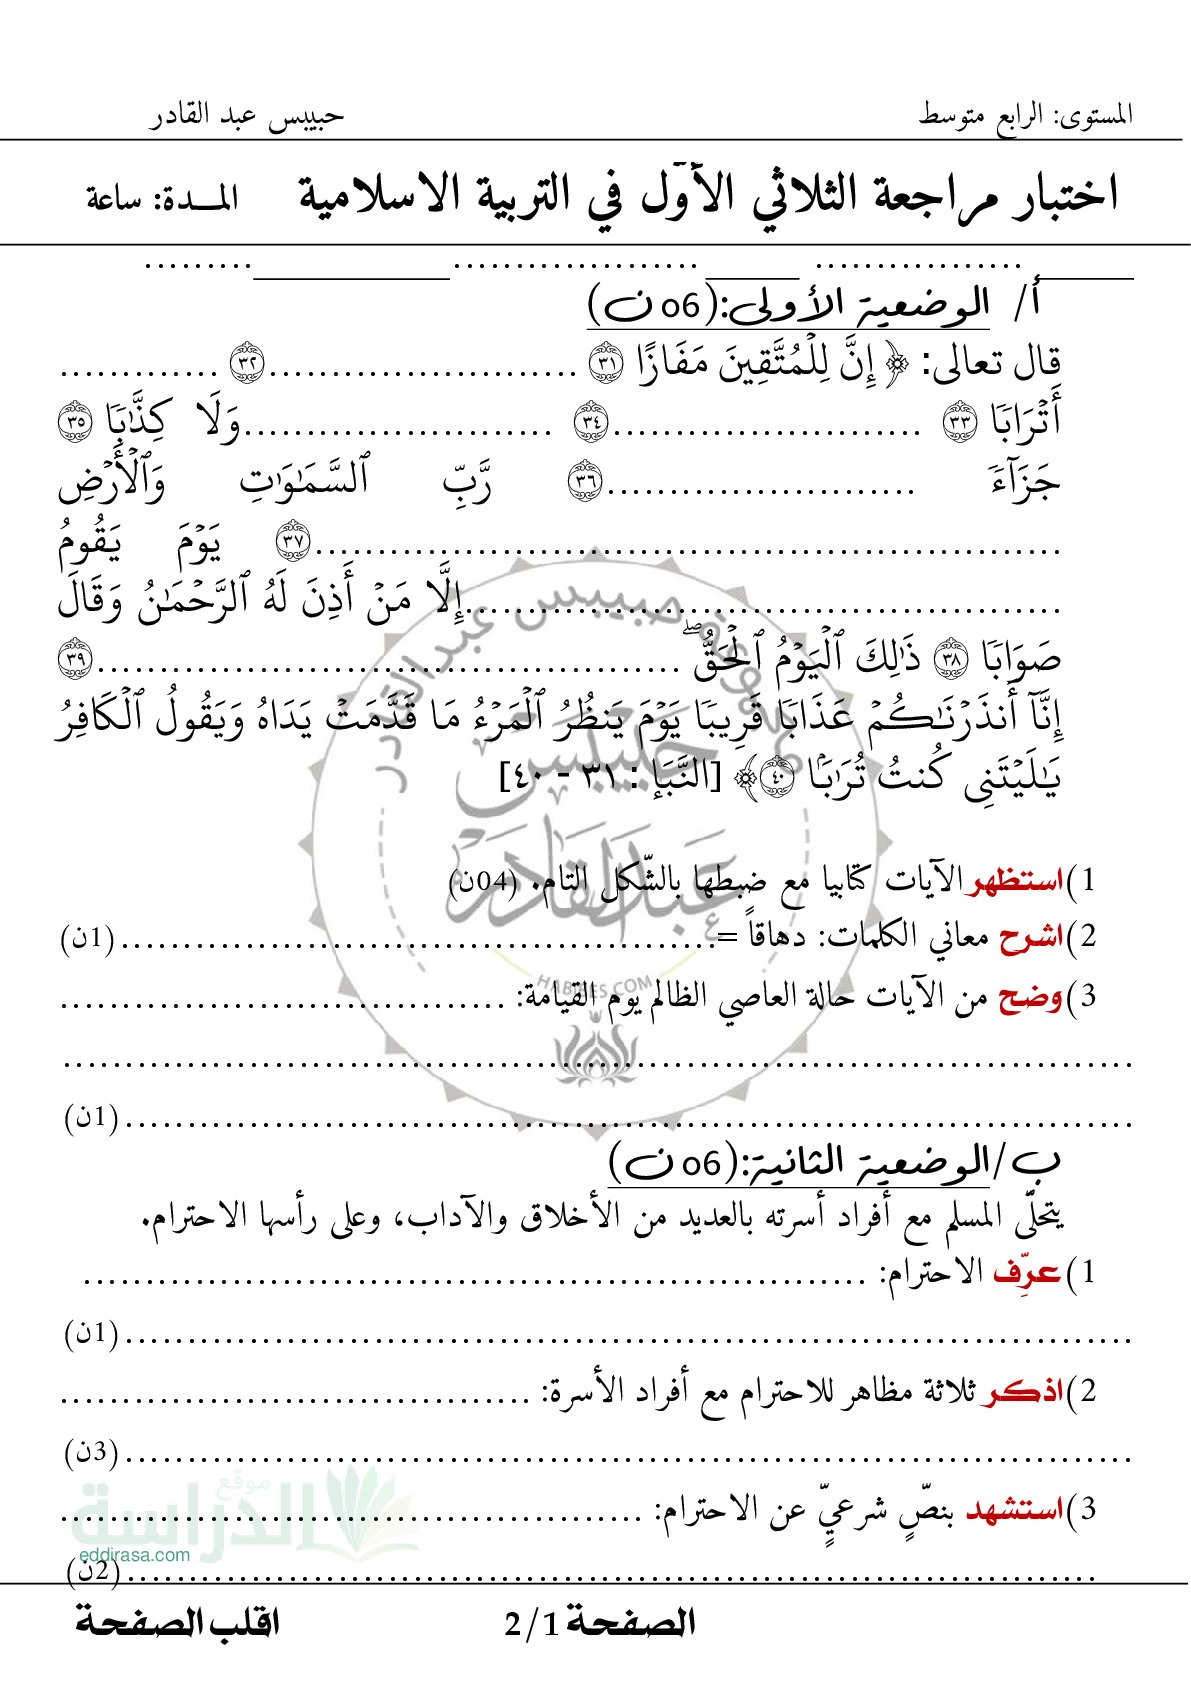 المستوى: الرابع متوسط حبيبس عبد القادر
اختبار مراجعة الثلاثي الأوّل في التربية الاسلامية المـــدة: ساعة
................. .................... .........
أ/ الوضعية الأولى:(o6 ن)
قال تعالى: ﴿ إِنَّ لِلْمُتَّقِينَ مَفَازًا ٣١ ......................... ٣٢ .............
أَتْرَابٗا ٣٣ ......................... ٣٤ .........................وَلَا كِذَّٰبٗا ٣٥
جَزَآءٗ ......................... ٣٦ رَّبِّ ٱلسَّمَٰوَٰتِ وَٱلْأَرْضِ
............................................................ ٣٧ يَوْمَ يَقُومُ
................................................إِلَّا مَنْ أَذِنَ لَهُ ٱلرَّحْمَٰنُ وَقَالَ
صَوَابٗا ٣٨ ذَٰلِكَ ٱلْيَوْمُ ٱلْحَقُّۖ ............................................... ٣٩
إِنَّآ أَنذَرْنَٰكُمْ عَذَابٗا قَرِيبٗا يَوْمَ يَنظُرُ ٱلْمَرْءُ مَا قَدَّمَتْ يَدَاهُ وَيَقُولُ ٱلْكَافِرُ
يَٰلَيْتَنِي كُنتُ تُرَٰبَۢا ٤٠ ﴾ [النَّبَإِ : ٣١ - ٤٠]
1)استظهر الآيات كتابيا مع ضبطها بالشّكل التام. (04ن)
2)اشرح معاني الكلمات: دهاقاً =................................................ (1ن)
3)وضح من الآيات حالة العاصي الظالم يوم القيامة: ....................................
......................................................................................
................................................................................. (1ن)
HABIBES.COM
ب/الوضعية الثانية:(o6 ن)
يتحلّى المسلم مع أفراد أسرته بالعديد من الأخلاق والآداب، وعلى رأسها الاحترام.
1)عرِّف الاحترام: ...............................................................
................................................................................. (1ن)
2)اذكر ثلاثة مظاهر للاحترام مع أفراد الأسرة: ......................................
................................................................................. (3ن)
3)استشهد بنصٍّ شرعيٍّ عن الاحترام: ...............................................
.............................................................................. (2ن)
موقع
الدراسة
eddirasa.com
الصفحة 2/1 اقلب الصفحة